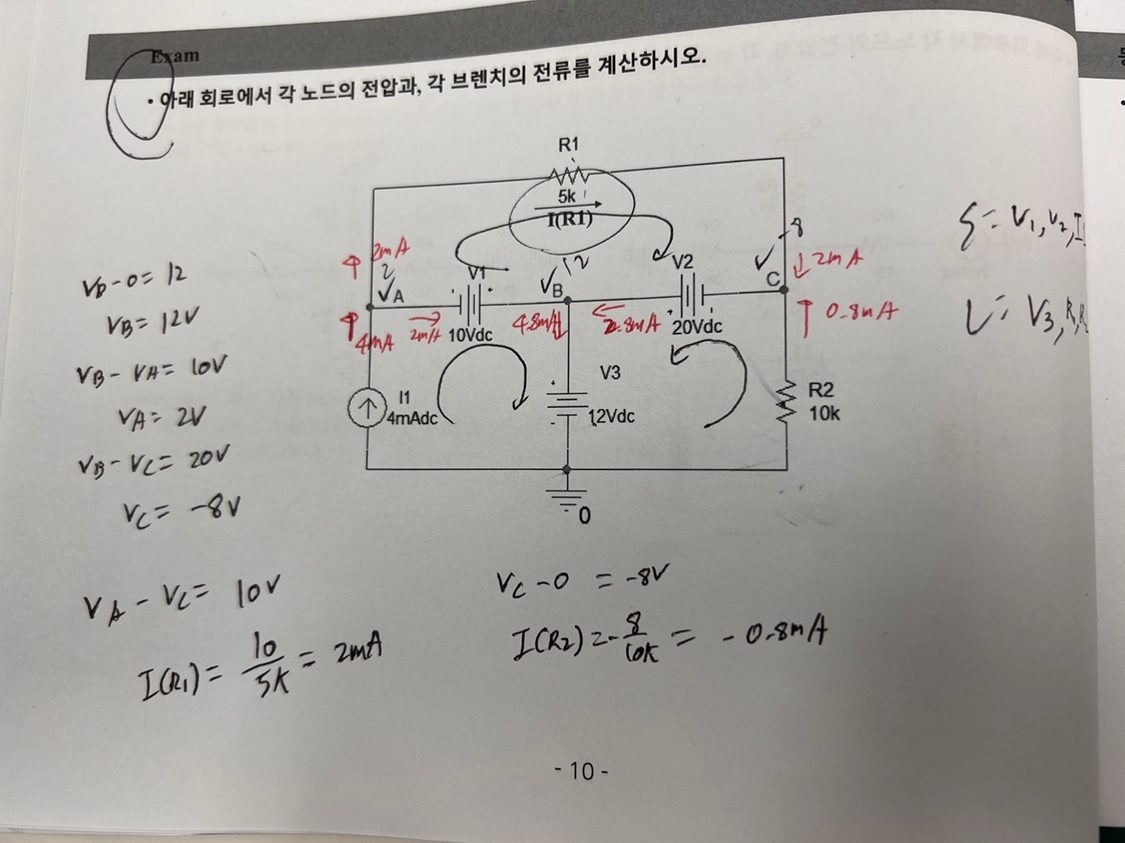 Exam
• 아래 회로에서 각 노드의 전압과, 각 브렌치의 전류를 계산하시오.
R1
5k
I(R1)
8
2mA
2
A
V1
B
12
V2
C
2mA
4mA
2mA
10Vdc
4.8mA
2.8mA
20Vdc
0.8mA
I1
4mAdc
V3
12Vdc
R2
10k
0
VB-0= 12
VB= 12V
VB- VA= 10V
VA= 2V
VB-VC= 20V
VC= -8V
VA - VC= 10V
I(R1)= 10/5K = 2mA
VC-0 = -8V
I(R2)=-8/10K = -0.8mA
V1, V2, I
V3, R,
- 10 -